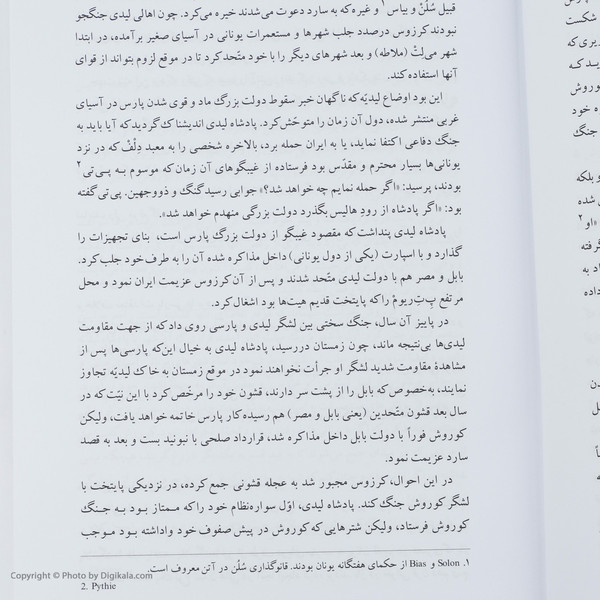 قبیل سُلُنْ و بیاس۱ و غیره که به سارد دعوت می‌شدند خیره می‌کرد. چون اهالی لیدی جنگجو
نبودند کرزوس درصدد جلب شهرها و مستعمرات یونانی در آسیای صغیر برآمده، در ابتدا
شهر می‌لِتْ (ملاطه) و بعد شهرهای دیگر را با خود متّحد کرد تا در موقع لزوم بتواند از قوای
آنها استفاده کند.
این بود اوضاع لیدیّه که ناگهان خبر سقوط دولت بزرگ ماد و قوی شدن پارس در آسیای
غربی منتشر شده، دول آن زمان را متوحّش کرد. پادشاه لیدی اندیشناک گردید که آیا باید به
جنگ دفاعی اکتفا نماید، یا به ایران حمله برد، بالاخره شخصی را به معبد دِلْف که در نزد
یونانی‌ها بسیار محترم و مقدّس بود فرستاده از غیبگوهای آن زمان که موسوم به پی‌تی۲
بودند، پرسید: «اگر حمله نمایم چه خواهد شد؟» جوابی رسید گنگ و ذووجهین. پی‌تی گفته
بود: «اگر پادشاه از رودِ هالیس بگذرد دولت بزرگی منهدم خواهد شد».
پادشاه لیدی پنداشت که مقصود غیبگو از دولت بزرگ پارس است، بنای تجهیزات را
گذارد و با اسپارت (یکی از دول یونانی) داخل مذاکره شده آن را به طرف خود جلب کرد.
بابل و مصر هم با دولت لیدی متّحد شدند و پس از آن کرزوس عزیمت ایران نمود و محل
مرتفع پِ‌تِ‌ریومْ را که پایتخت قدیم هیت‌ها بود اشغال کرد.
در پاییز آن سال، جنگ سختی بین لشگر لیدی و پارسی روی داد که از جهت مقاومت
لیدی‌ها بی‌نتیجه ماند، چون زمستان دررسید، پادشاه لیدی به خیال این‌که پارسی‌ها پس از
مشاهدهٔ مقاومت شدید لشگر او جرأت نخواهند نمود در موقع زمستان به خاک لیدیّه تجاوز
نمایند، به‌خصوص که بابل را از پشت سر دارند، قشون خود را مرخّص کرد با این نیّت که در
سال بعد قشون متّحدین (یعنی بابل و مصر) هم رسیده کار پارس خاتمه خواهد یافت، ولیکن
کوروش فوراً با دولت بابل داخل مذاکره شد، قرارداد صلحی با نبونید بست و بعد به قصد
سارد عزیمت نمود.
در این احوال، کرزوس مجبور شد به عجله قشونی جمع کرده، در نزدیکی پایتخت با
لشگر کوروش جنگ کند. پادشاه لیدی، اوّل سواره‌نظام خود را که ممتاز بود به جنگ
کوروش فرستاد، ولیکن شترهایی که کوروش در پیش صفوف خود واداشته بود موجب
۱. Solon و Bias از حکمای هفتگانه یونان بودند. قانوگذاری سُلُن در آتن معروف است.
2. Pythie
Copyright © Photo by Digikala.com
شکست
کوروش
خود
جنگ
و بلکه
شده
«او۲
گرفته
به
داده